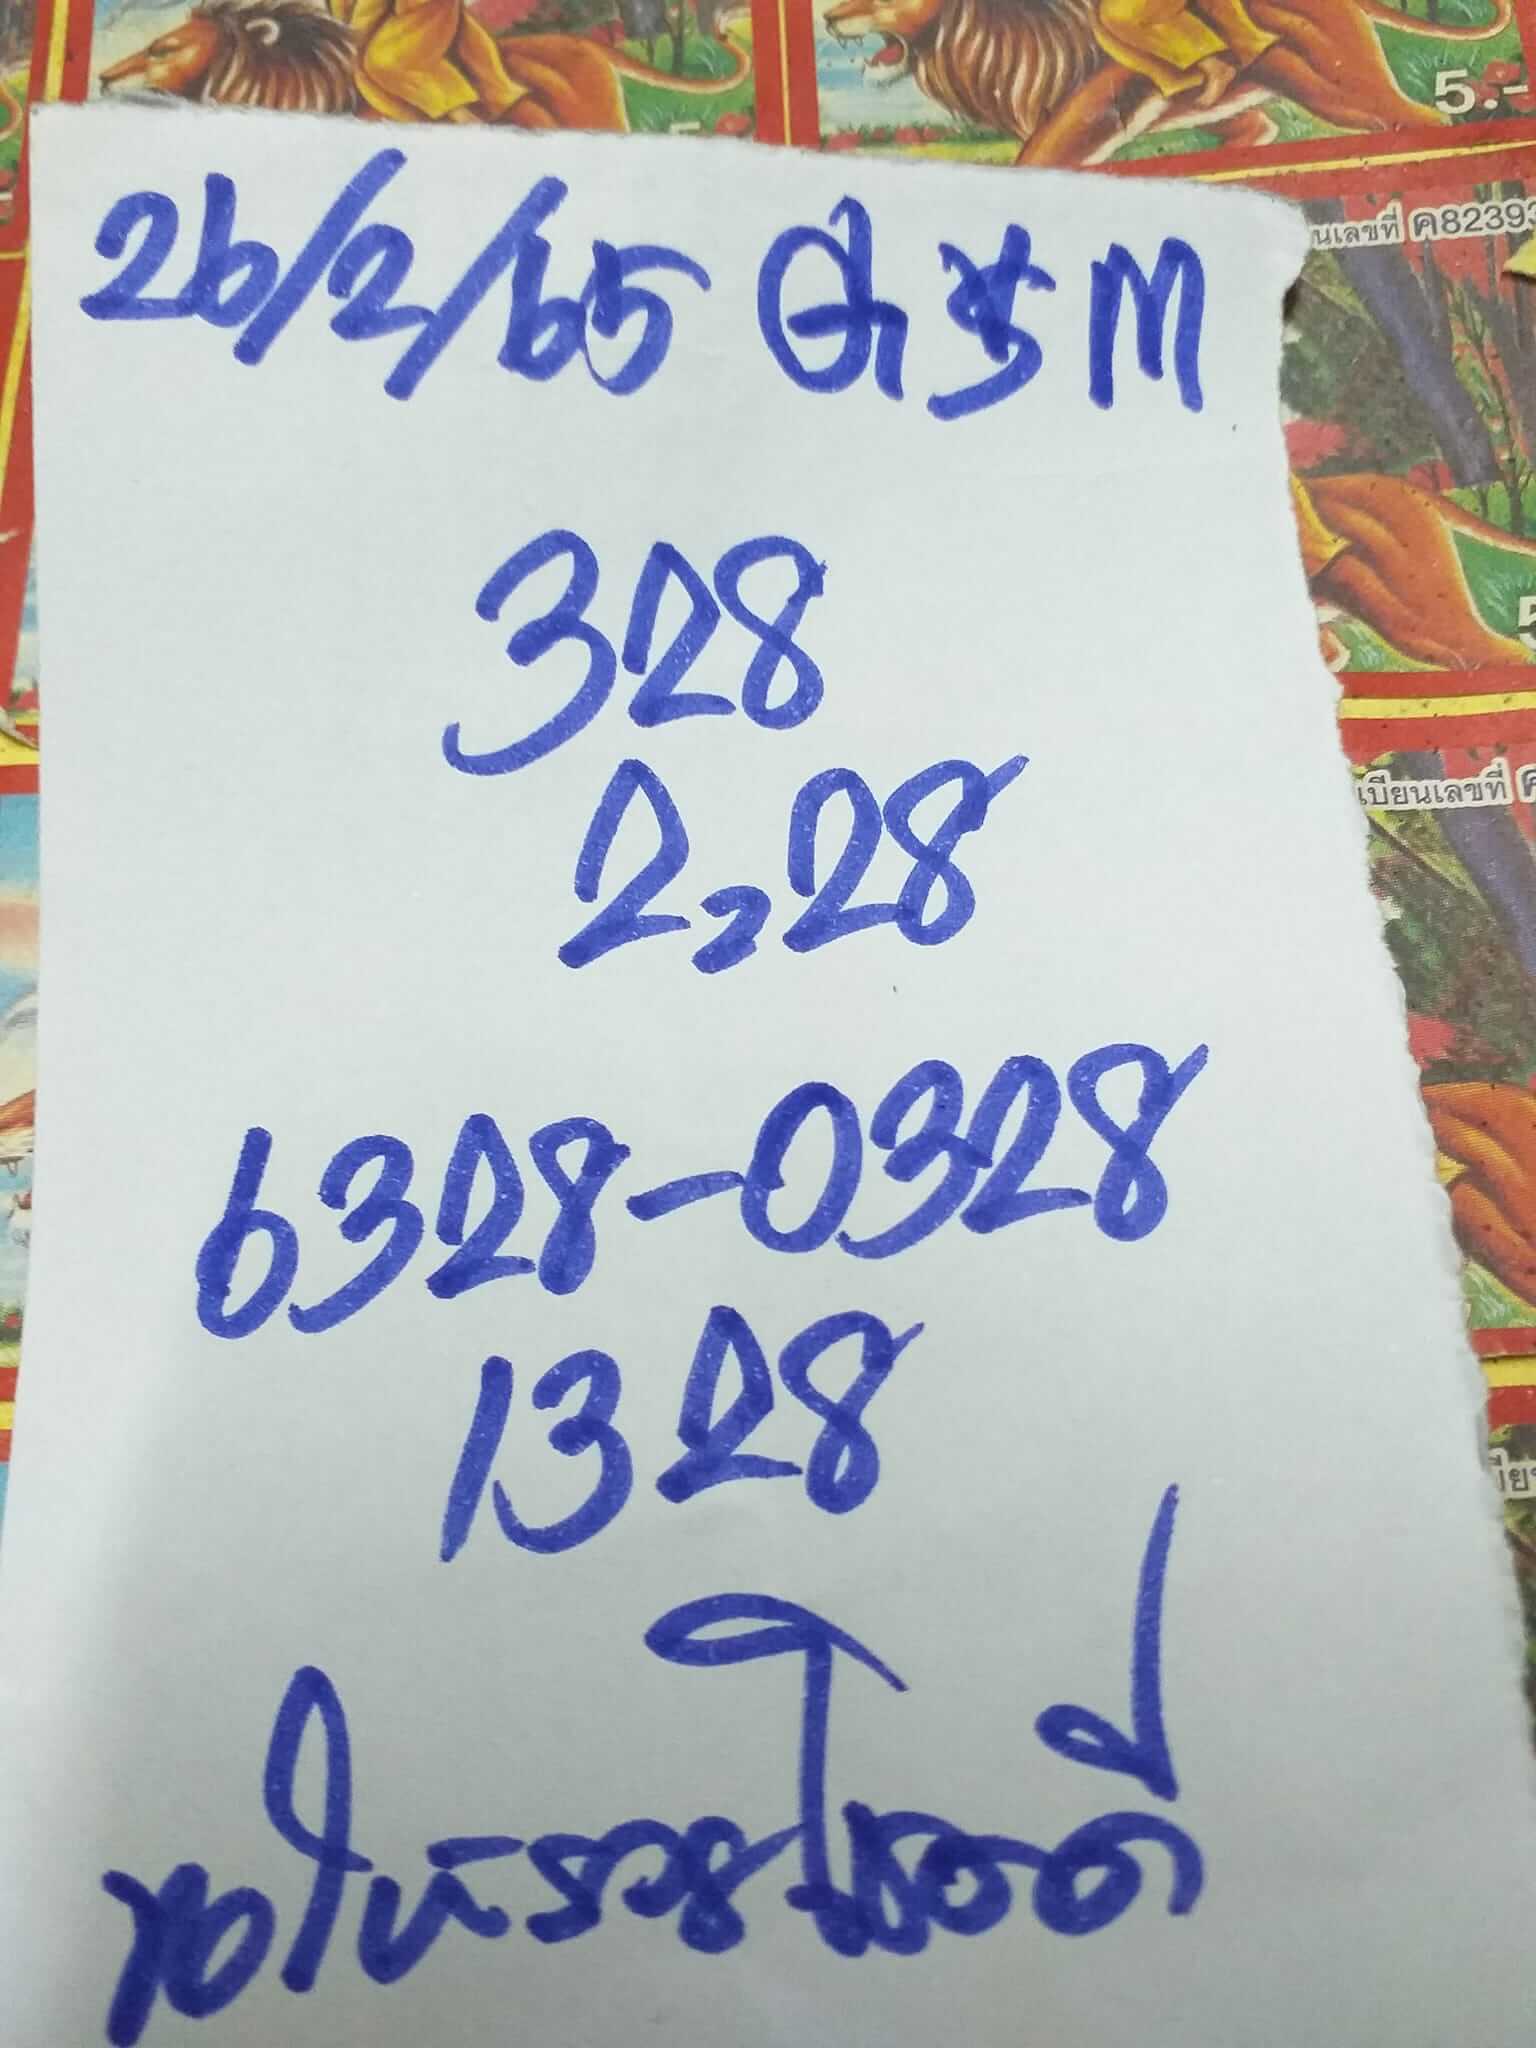 26/2/65
328
2,28
6328-0328
1328
ขอให้รวยโชคดี
5.-
นเลขที่ ค8239
เบียนเลขที่ ค